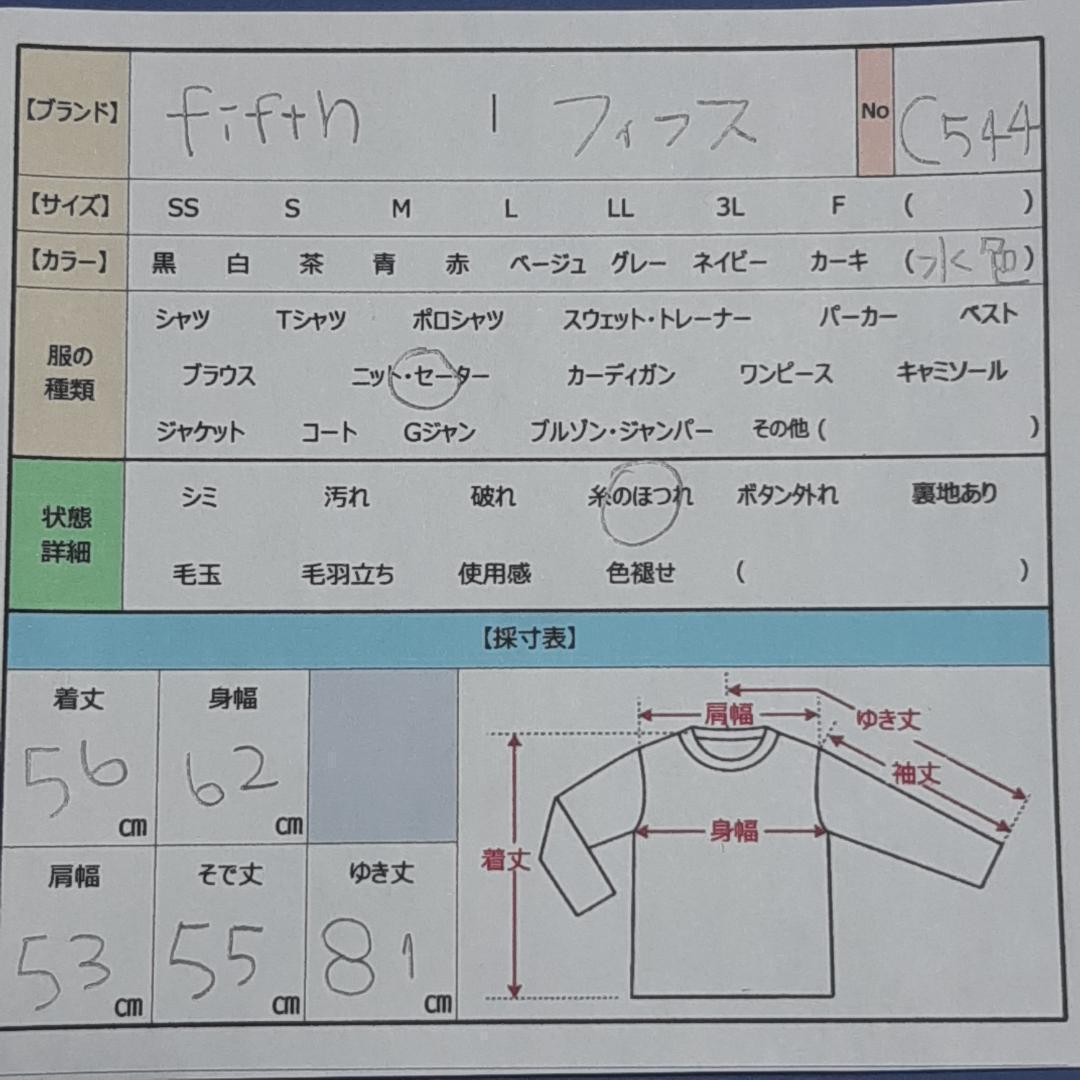 【ブランド】 fifth | フィフス No C544
【サイズ】 SS S M L LL 3L F ( )
【カラー】 黒 白 茶 青 赤 ベージュ グレー ネイビー カーキ (水色)
服の種類
シャツ Tシャツ ポロシャツ スウェット・トレーナー パーカー ベスト
ブラウス ニット・セーター カーディガン ワンピース キャミソール
ジャケット コート Gジャン ブルゾン・ジャンパー その他 ( )
状態詳細
シミ 汚れ 破れ 糸のほつれ ボタン外れ 裏地あり
毛玉 毛羽立ち 使用感 色褪せ ( )
【採寸表】
着丈 身幅
56 cm 62 cm
肩幅 そで丈 ゆき丈
53 cm 55 cm 81 cm
肩幅 ゆき丈
袖丈
身幅
着丈